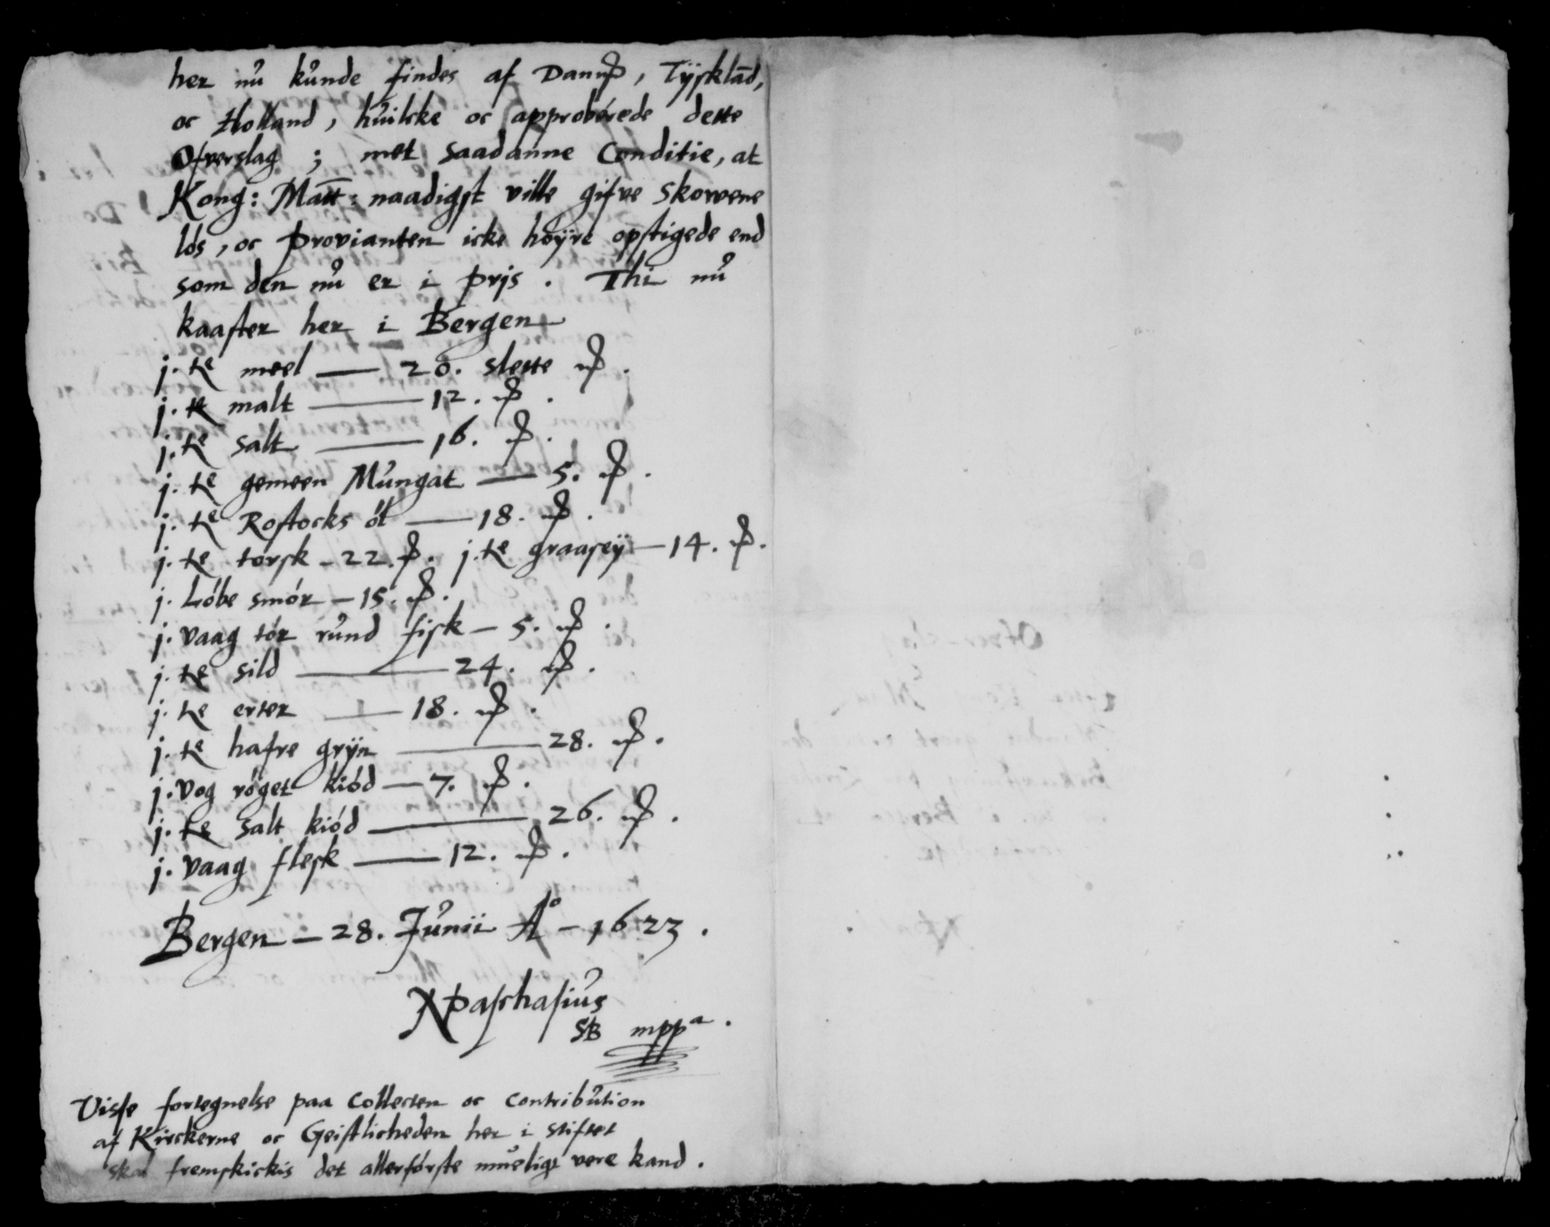 her nů kůnde findes af Danm̄, Tÿsklād,
oc Holland, hůilcke oc approbérede dette
Ofverslag ; met saadanne Conditie, at
Kong: Matt: naadigst ville gifve Skowene
lós, oc Provianten icke höÿre opstigede end
som den nů er i prjs. Thi nů
kaaster her i Bergen
j. te meel — 20. slette
j. te malt — 12.
j. te salt — 16.
j. te gemeen Můngat — 5.
j. te Rostocks ól — 18.
j. te torsk – 22. j. te graasey — 14.
j. Lóbe smór — 15.
j. vaag tór růnd fisk — 5.
j. te sild — 24.
j. te erter — 18.
j. te hafre grÿn — 28.
j. vog róget kiód — 7.
j. te salt kiód — 26.
j. vaag flesk — 12.
Bergen — 28. Jůnii A° – 1623.
NPaschasiůs
SB mppa.
Visse fortegnelse paa Collecten oc contribůtion
af Kirckerne oc Geistlicheden her i stiftet
skal fremskickis det allerfórste můeligt vere kand.